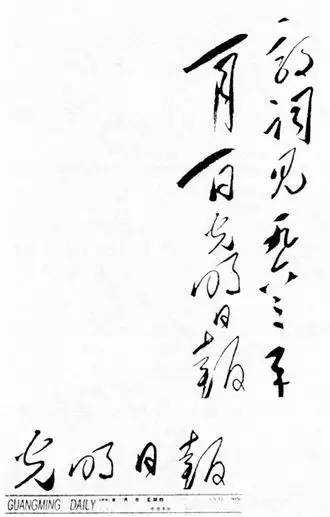 郭词见一九六三年
一月一日光明
日报
光明日报
GUANGMING DAILY